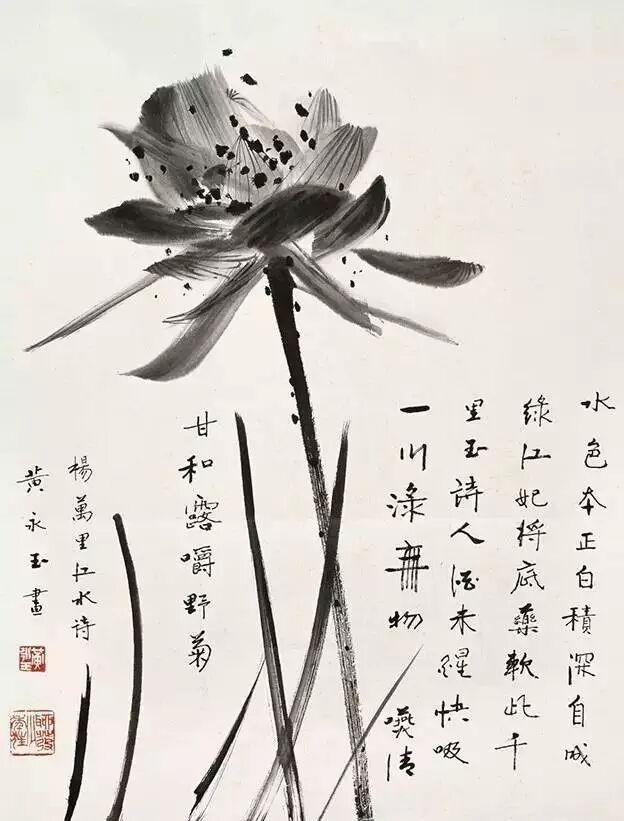 水色本正白積深自成
綠江妃將底藥軟此千
里玉詩人酒未醒快啜
一川淥無物嚥清
甘和露嚼野菊
楊萬里江水詩
黃永玉畫